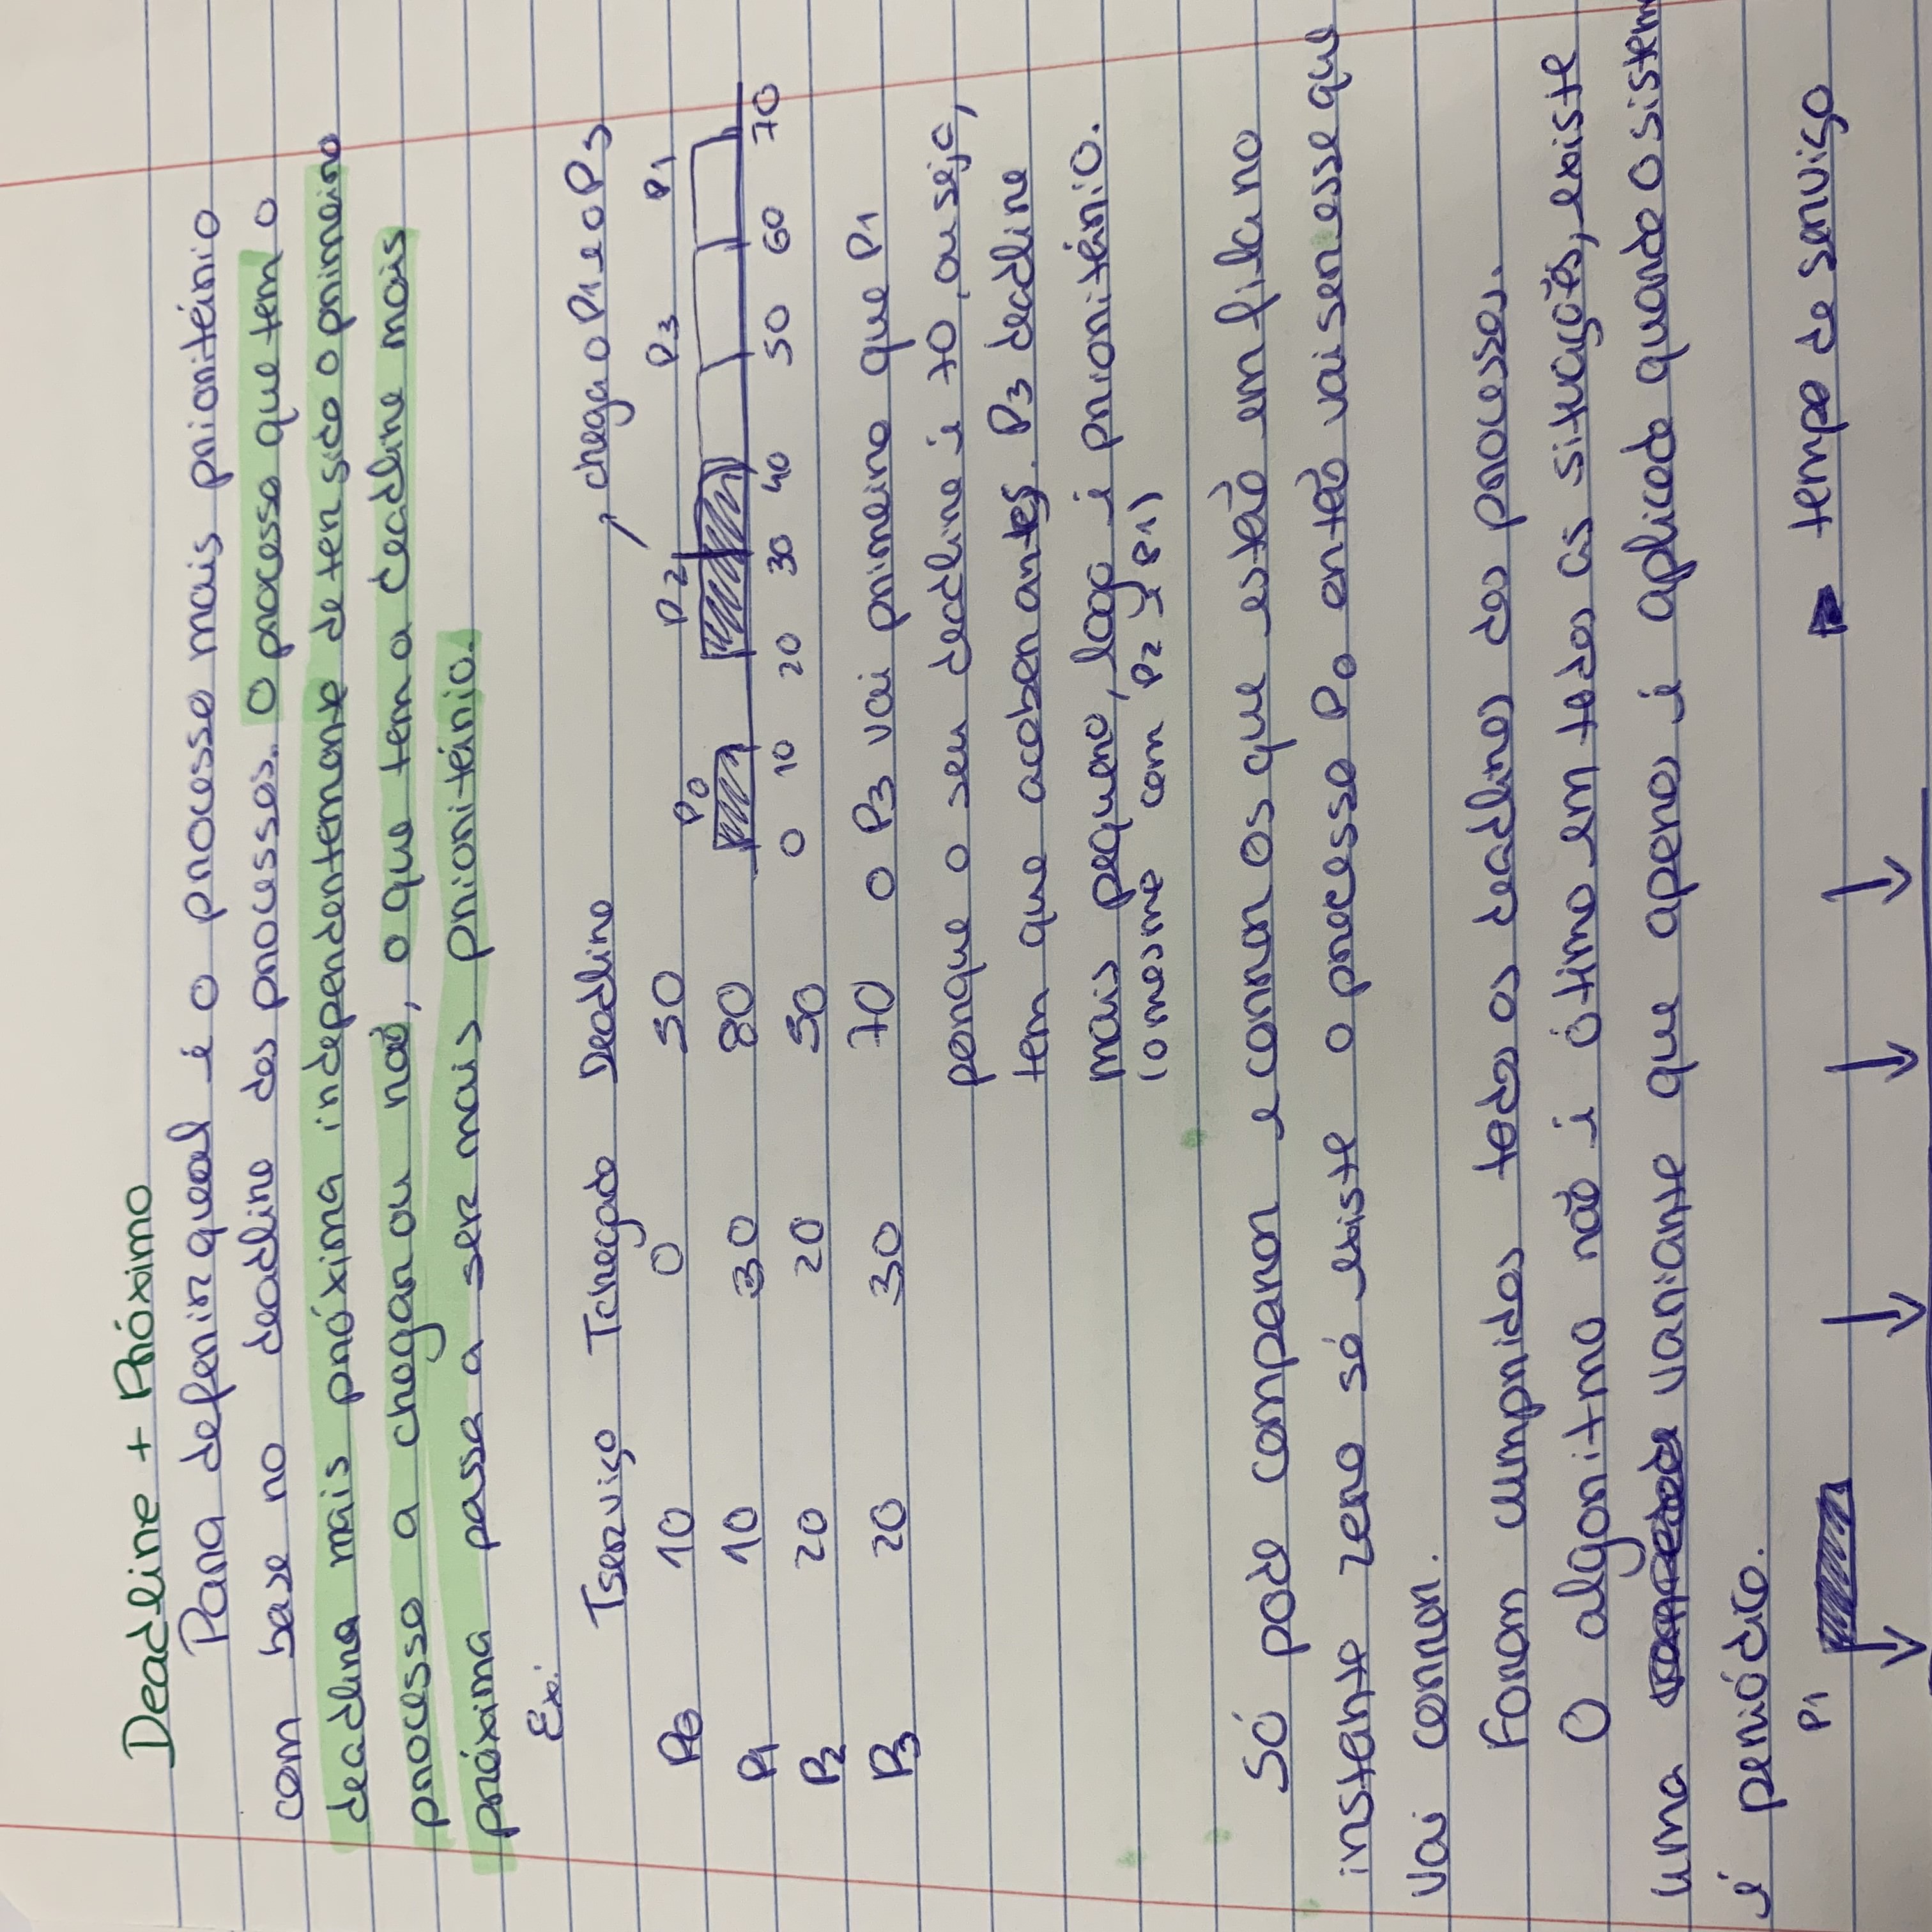 Deadline + Próximo
Para defenir queal é o processo mais prioritário
com base no deadline dos processos. O processo que tem o
deadline mais próxima independentemente de ter sido o primeiro
processo a chegar ou não, o que tem a deadline mais
próxima passa a ser mais prioritário.
Ex:
Tserviço Tchegada Deadline chega o P1 e o P3
P0 10 0 50 P0 P2 P3 P1
P1 10 30 80
0 10 20 30 40 50 60 70
P2 20 20 50
P3 20 30 70 o P3 vai primeiro que P1
porque o seu deadline é 70, ou seja,
tem que acabar antes. P3 deadline
mais pequeno, logo é prioritário.
(o mesmo com P2 e P1)
Só pode comparar e correr os que estão em fila no
instante zero só existe o processo P0 então vai ser esse que
vai correr.
Foram cumpridos todos os deadlines dos processos.
O algoritmo não é ótimo em todas as situações, existe
uma variante que apenas é aplicada quando o sistem
é periódico.
P1 tempo de serviço